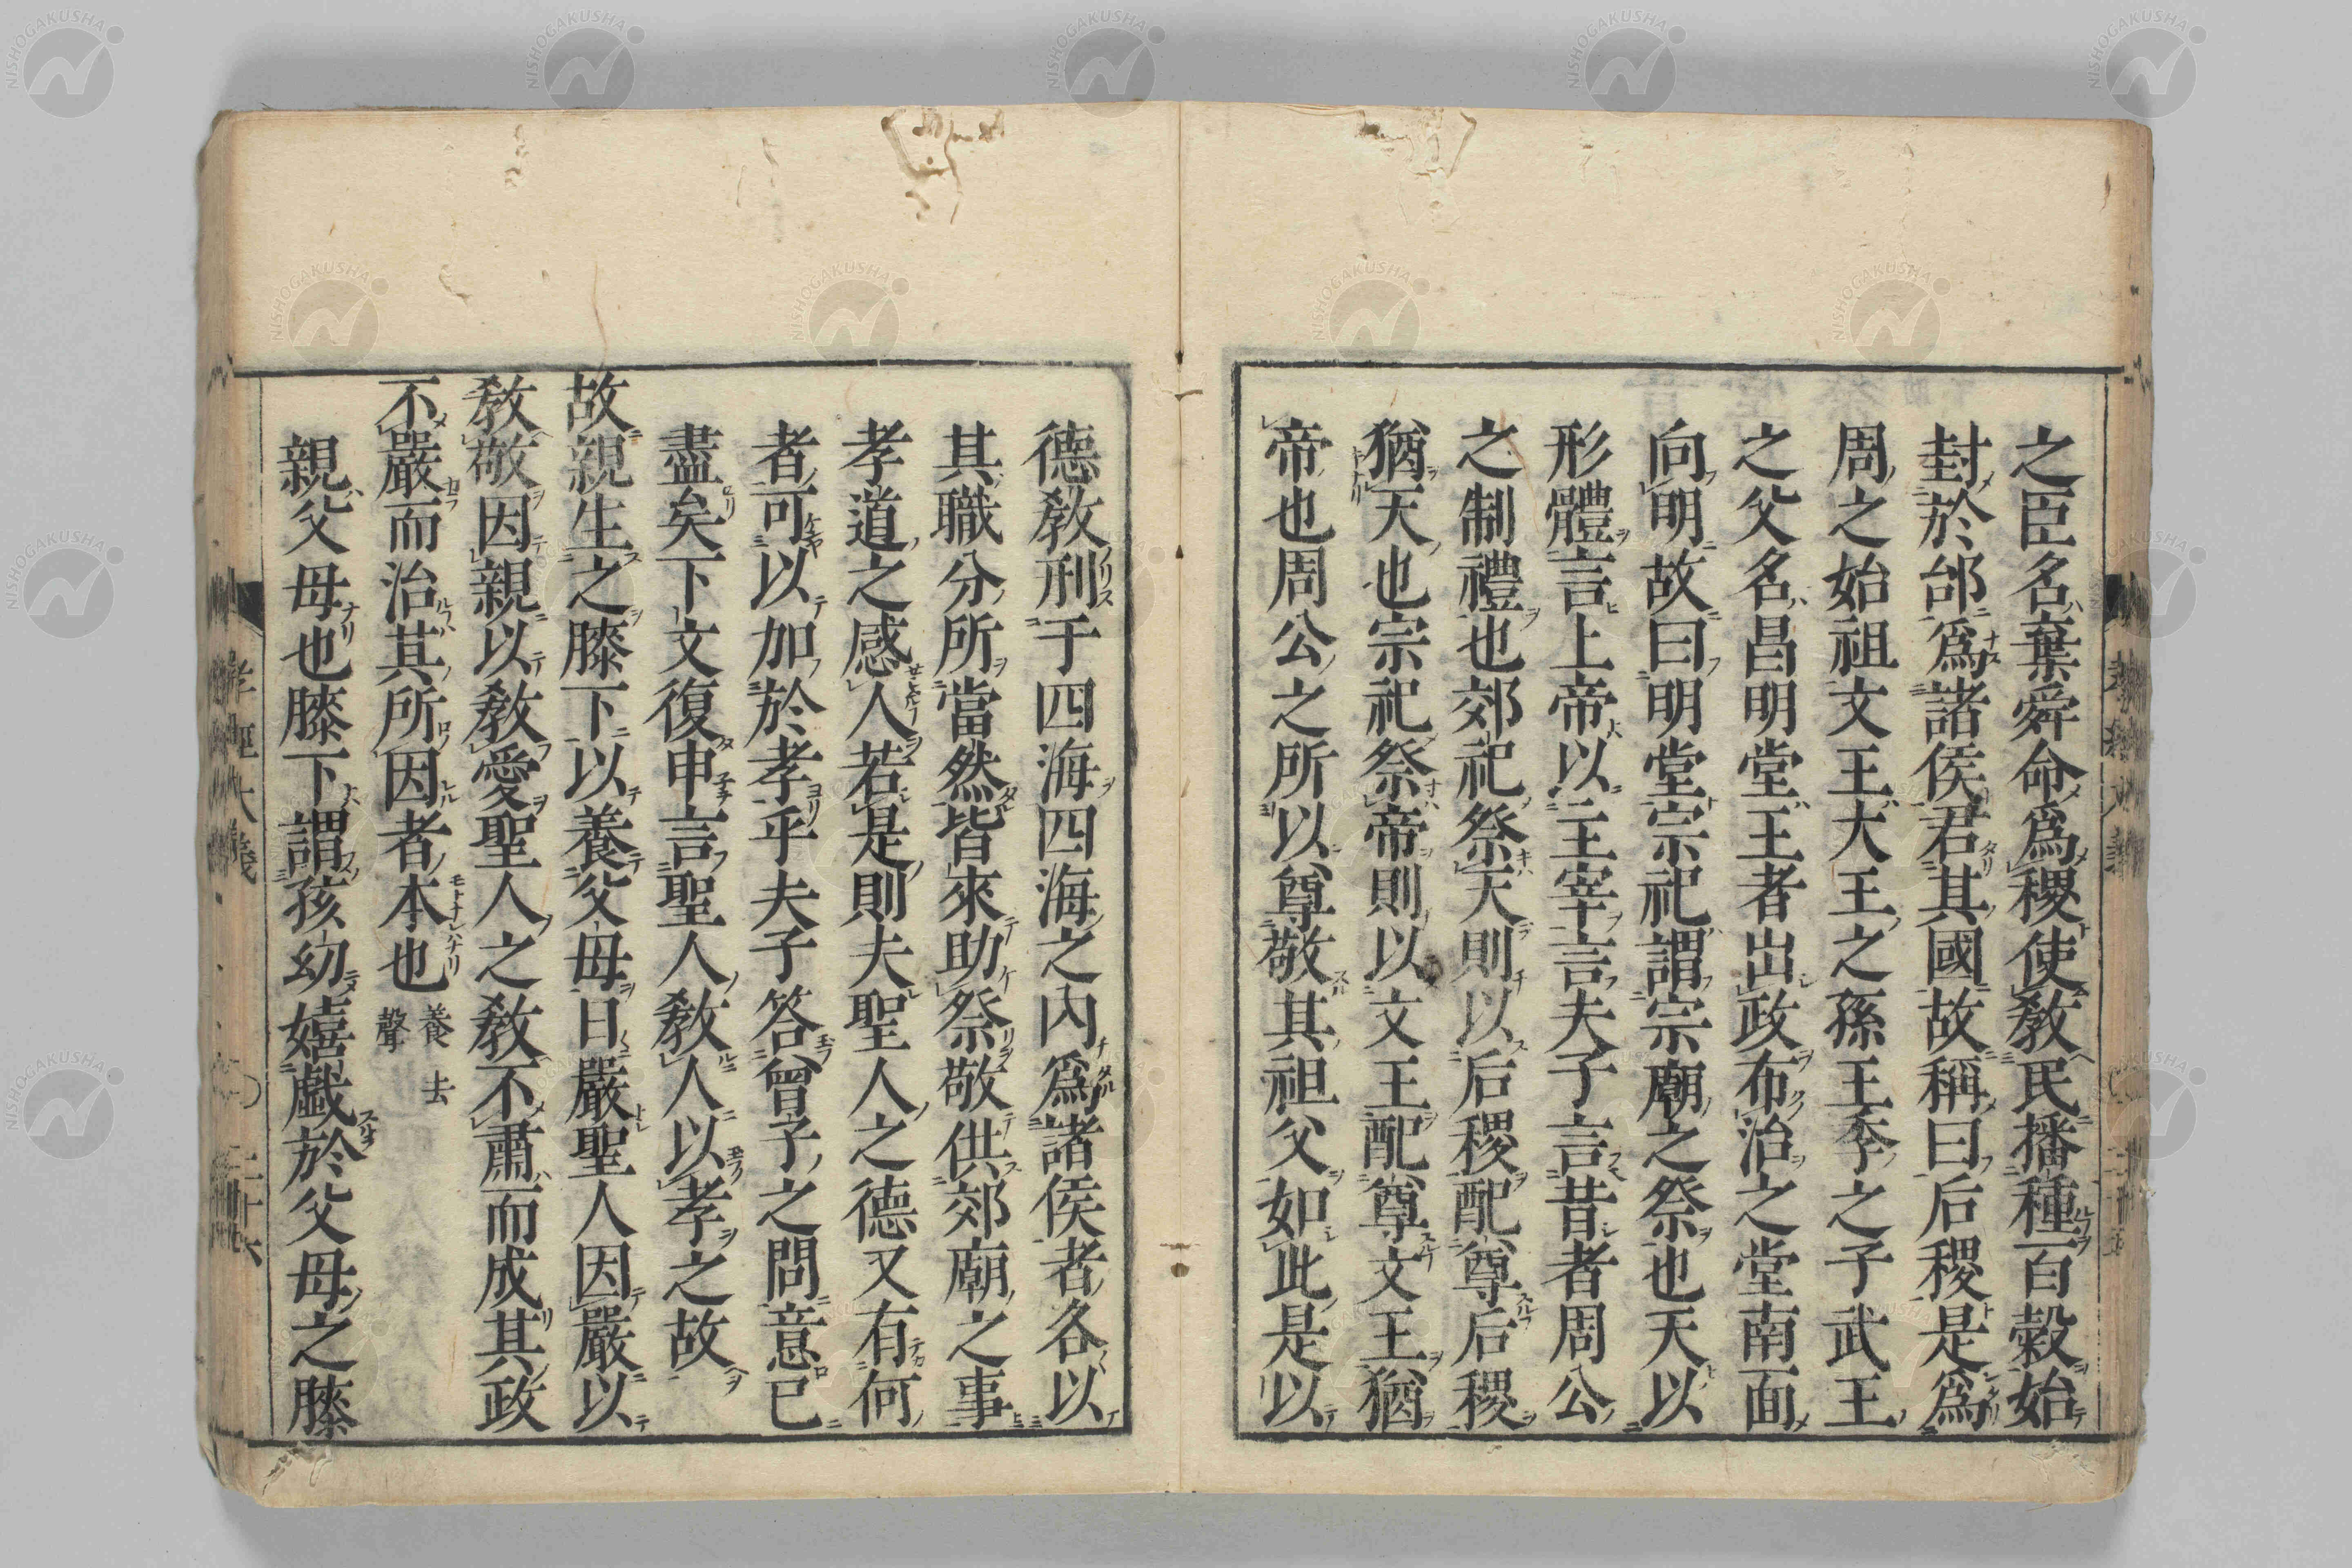 之臣名棄舜命爲稷使敎民播種百穀始
封於邰爲諸侯君其國故稱曰后稷是爲
周之始祖文王大王之孫王季之子武王
之父名昌明堂王者出政布治之堂南面
向明故曰明堂宗祀謂宗廟之祭也天以
形體言上帝以主宰言夫子言昔者周公
之制禮也郊祀祭天則以后稷配尊后稷
猶天也宗祀祭帝則以文王配尊文王猶
帝也周公之所以尊敬其祖父如此是以
德敎刑于四海四海之內爲諸侯者各以
其職分所當然皆來助祭敬供郊廟之事
孝道之感人若是則夫聖人之德又有何
者可以加於孝乎夫子答曾子之問意已
盡矣下文復申言聖人敎人以孝之故
故親生之膝下以養父母日嚴聖人因嚴以
敎敬因親以敎愛聖人之敎不肅而成其政
不嚴而治其所因者本也 養去聲
親父母也膝下謂孩幼嬉戲於父母之膝
孝經大義 二十六
NISHOGAKUSHA